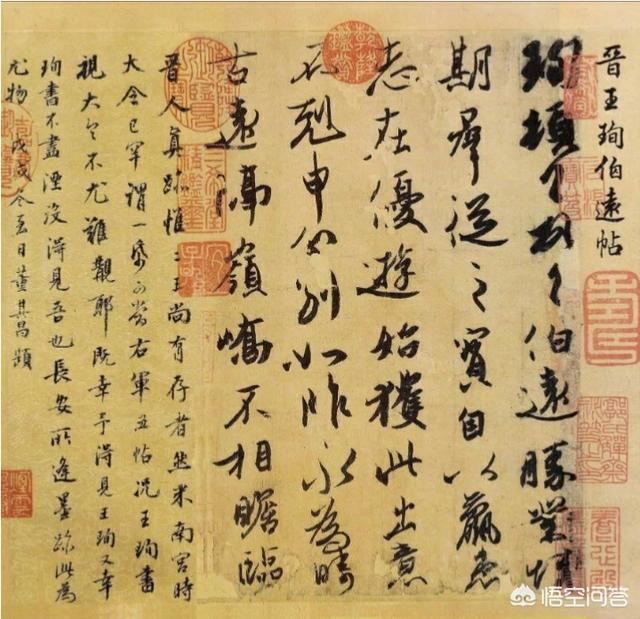 晉王珣伯遠帖
珣頓首頓首伯遠勝業情
期羣從之寳自以羸患
志在優遊始獲此出意
不剋申分别如昨永為疇
古遠隔嶺嶠不相瞻臨
晉人真跡惟二王尚有存者然米南宮時
大令已罕謂一紙可當右軍五帖况王珣書
視大令不尤難覯耶既幸予得見王珣又幸
珣書不盡湮没得見吾也長安所逢墨跡此為
尤物 戊戌冬至日董其昌題
悟空问答